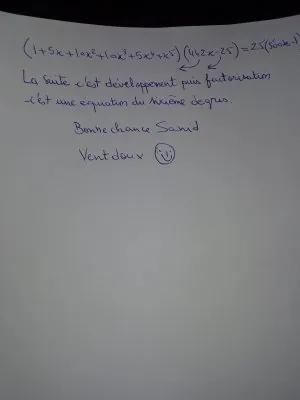 (1+5x+10x²+10x³+5x⁴+x⁵)(442x-25)=25(500x-1)
La suite c'est développement puis factorisation
-c'est une équation du sixième degrés.
Bonne chance Samd
Vent doux